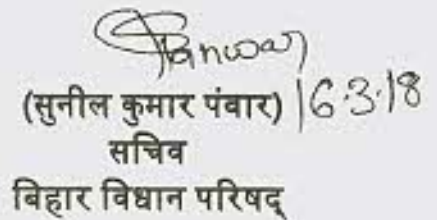 Panwar
(सुनील कुमार पंवार) 16.3.18
सचिव
बिहार विधान परिषद्